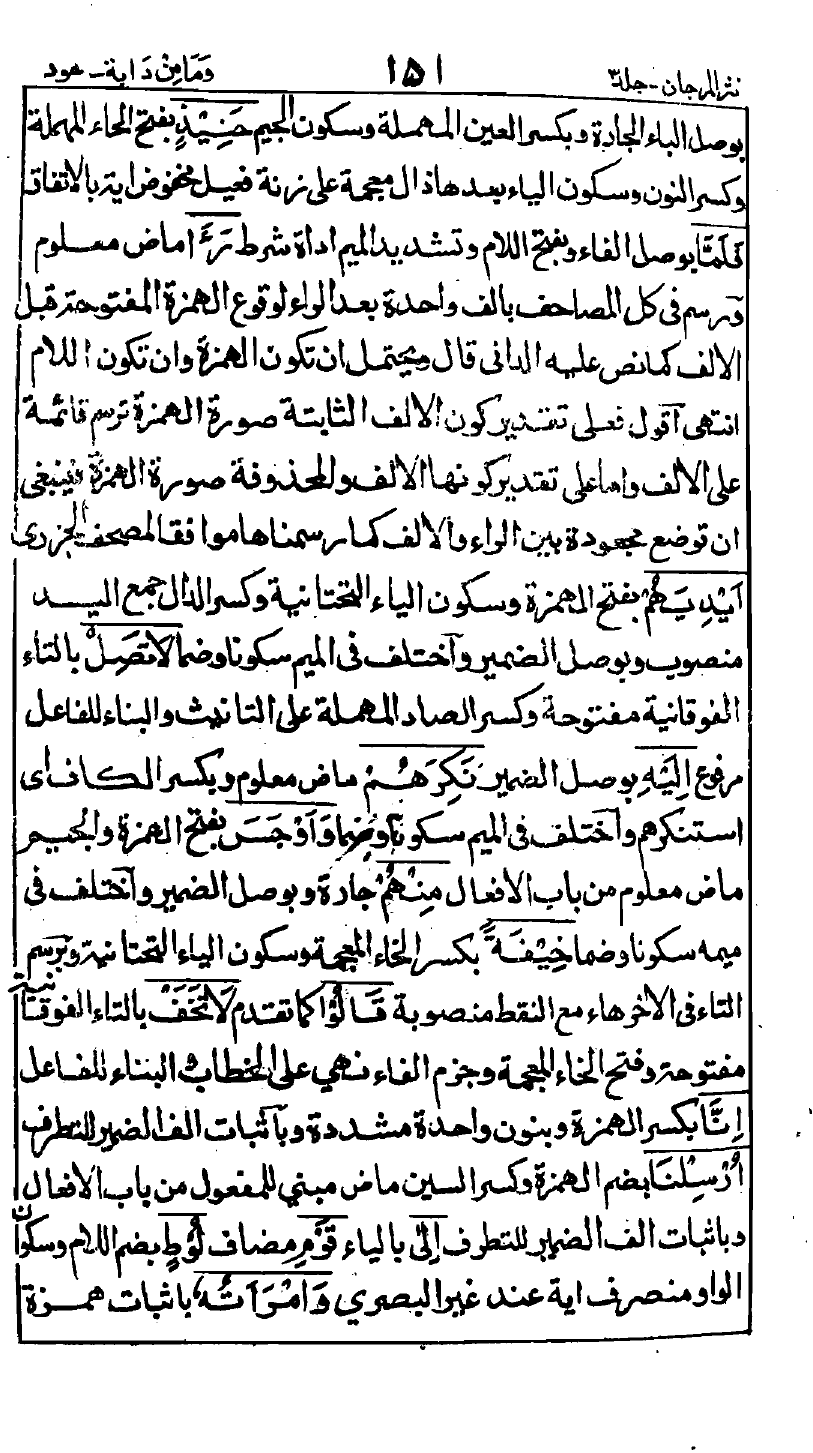 نثر المرجان - جلد ٣ ١٥١ وَمَا مِنْ دَابة - هود
بوصل الباء الجارة وبكسر العين المهملة وسكون الجيم حَنِيْذٍ بفتح الحاء المهملة
وكسر النون وسكون الياء بعدها ذال معجمة على زنة فعيل مخفوض اية بالاتفاق
فَلَمَّا بوصل الفاء وبفتح اللام وتشديد الميم اداة شرط رَءَا ماض معلوم
ورسم في كل المصاحف بالف واحدة بعد الراء لوقوع الهمزة المفتوحة قبل
الالف كما نص عليه الداني قال ويحتمل ان تكون الهمزة وان تكون اللام
انتهى اقول فعلى تقدير كون الالف الثابتة صورة الهمزة ترسم قائمة
على الالف واما على تقدير كونها الالف والمحذوفة صورة الهمزة فينبغي
ان توضع مجعودة بين الراء والالف كما رسمناها موافقا لمصحف الجزري
اَيْدِيَهُمْ بفتح الهمزة وسكون الياء التحتانية وكسر الدال جمع اليد
منصوب وبوصل الضمير واختلف في الميم سكونا وضما لَاتَصِلُ بالتاء
الفوقانية مفتوحة وكسر الصاد المهملة على التانيث والبناء للفاعل
مرفوع اِلَيْهِ بوصل الضمير نَكِرَهُمْ ماض معلوم وبكسر الكاف اى
استنكرهم واختلف في الميم سكونا وضما وَاَوْجَسَ بفتح الهمزة والجيم
ماض معلوم من باب الافعال مِنْهُمْ جارة وبوصل الضمير واختلف في
ميمه سكونا وضما خِيْفَةً بكسر الخاء المعجمة وسكون الياء التحتانية وترسم
التاء في الاخر هاء مع النقط منصوبة قَالُوْا كما تقدم لَاتَخَفْ بالتاء الفوقانية
مفتوحة وفتح الخاء المعجمة وجزم الفاء نهي على الخطاب البناء للفاعل
اِنَّا بكسر الهمزة وبنون واحدة مشددة وباثبات الف الضمير للتطرف
اُرْسِلْنَا بضم الهمزة وكسر السين ماض مبني للمفعول من باب الافعال
وباثبات الف الضمير للتطرف اِلٰى بالياء قَوْمِ مضاف لُوْطٍ بضم اللام وسكون
الواو منصرف اية عند غير البصري وَامْرَاَتُهٗ باثبات همزة